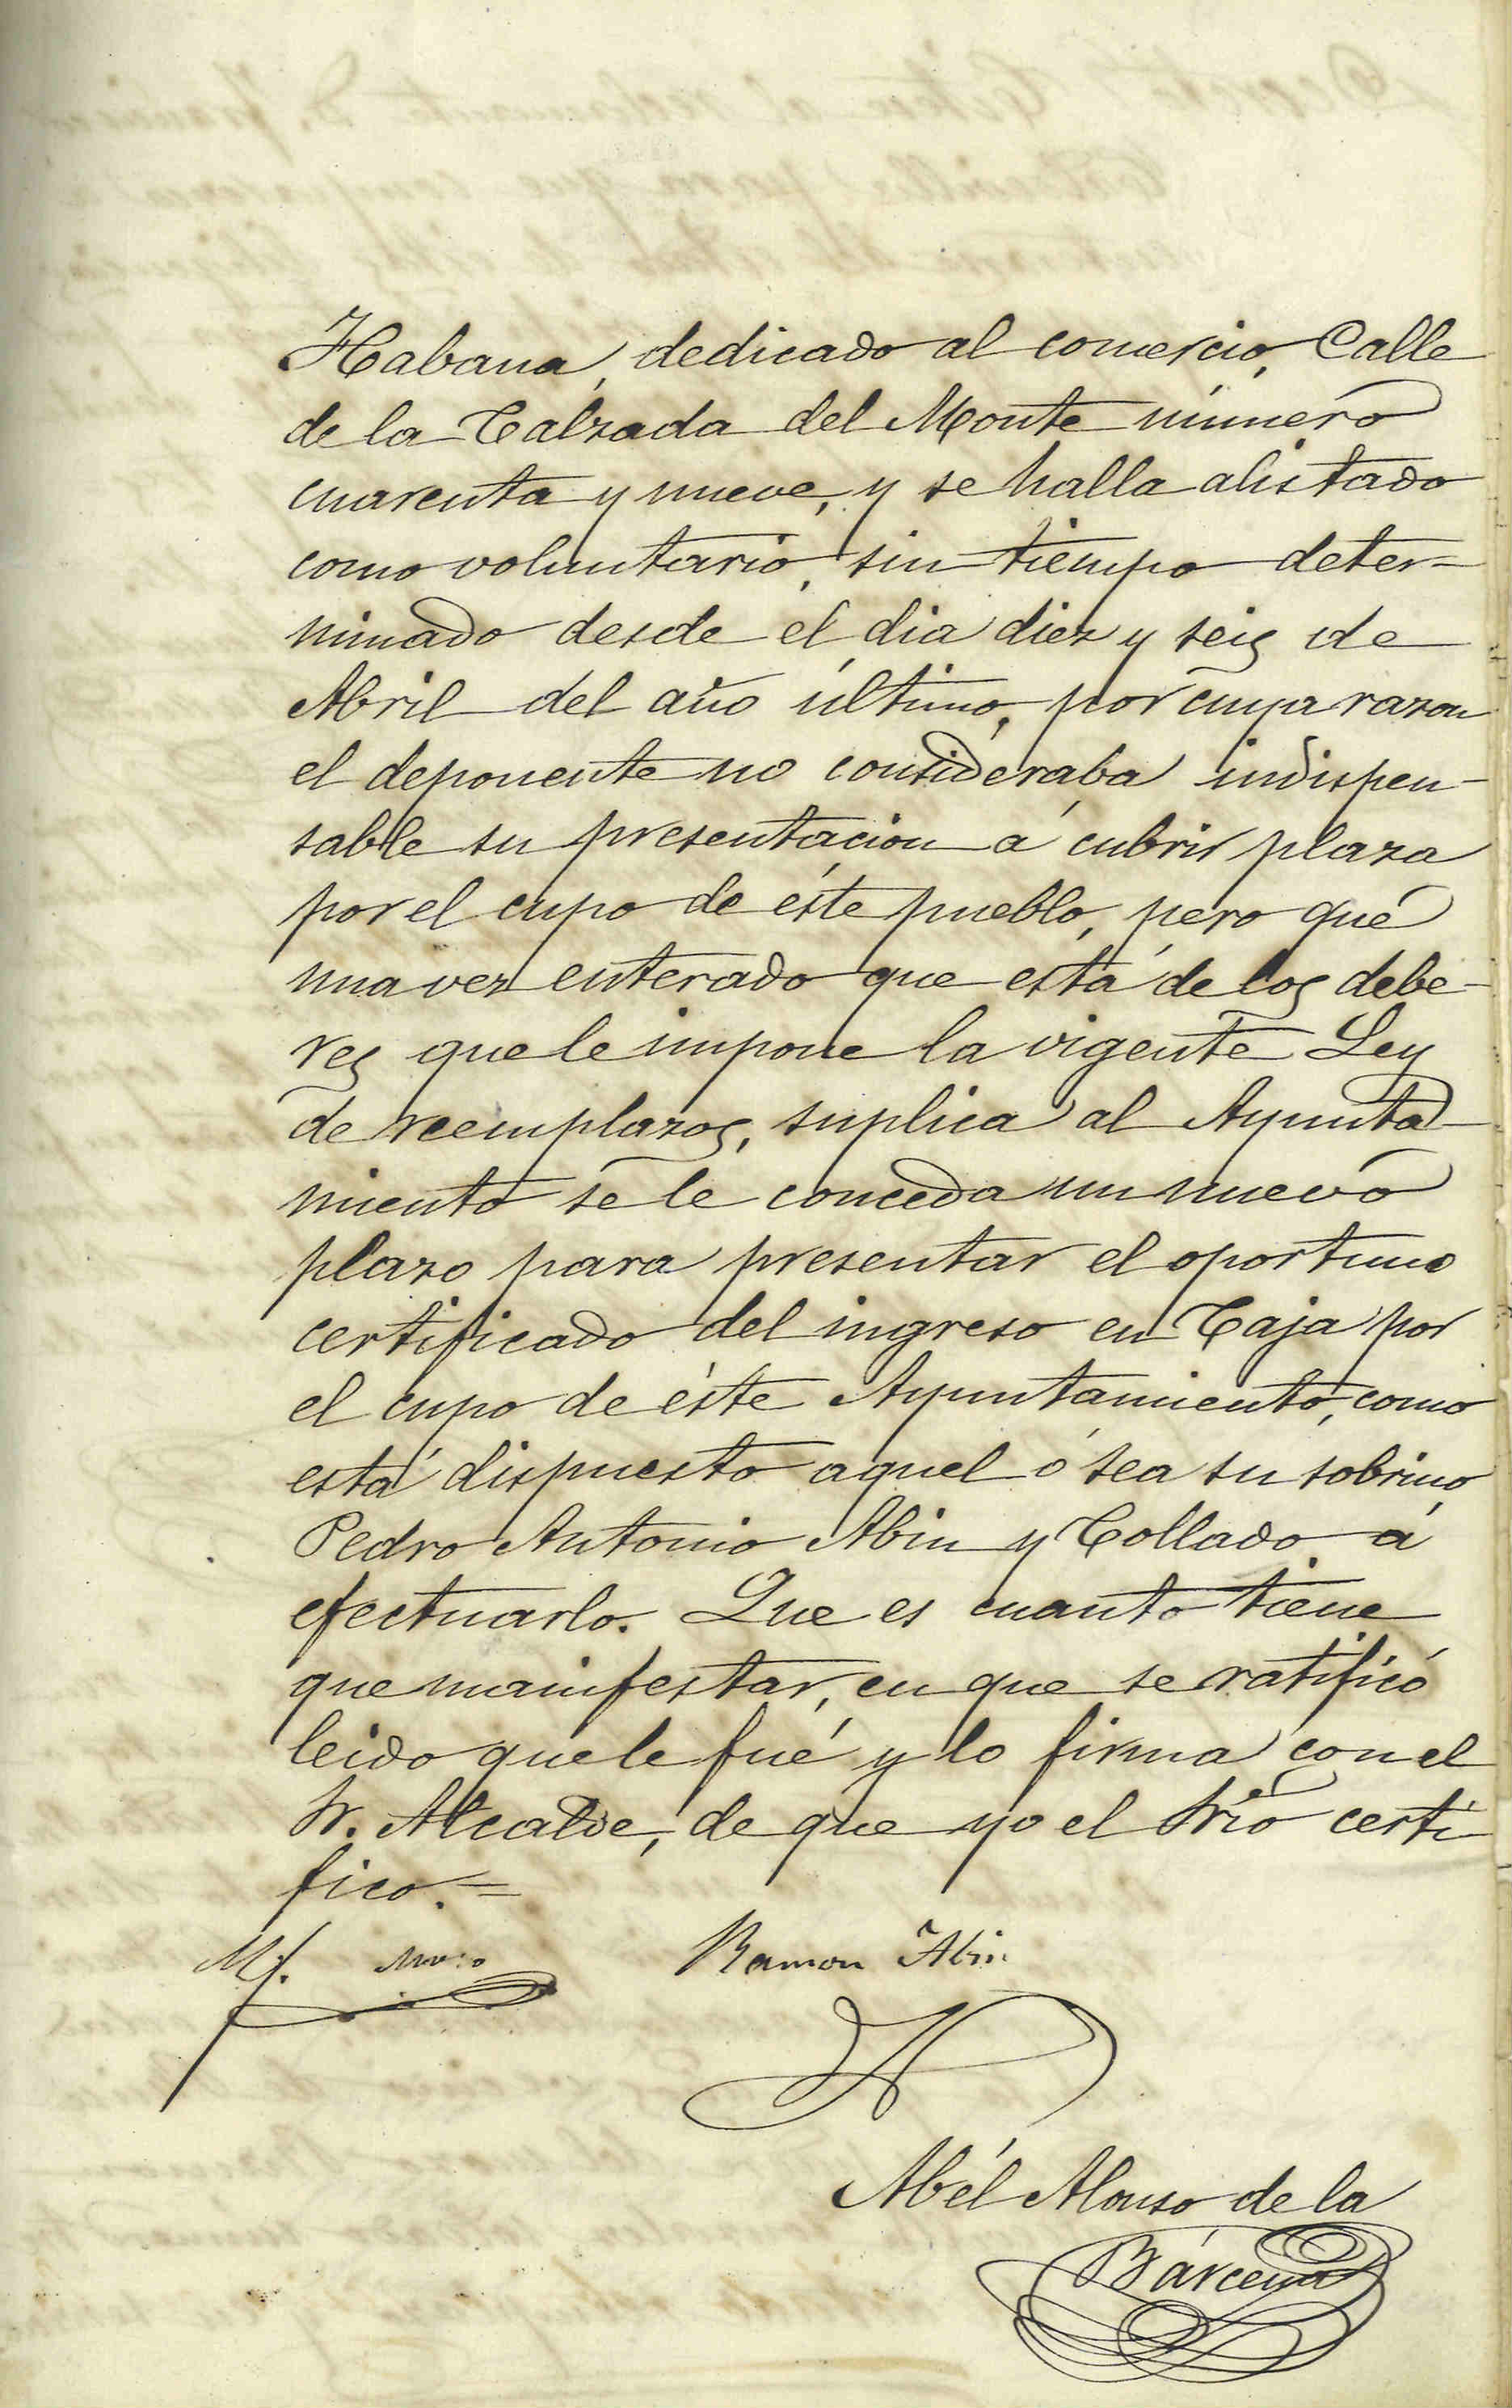 Habana, dedicado al comercio, Calle
de la Calzada del Monte número
cuarenta y nueve, y se halla alistado
como voluntario, sin tiempo deter=
minado desde el dia diez y seis de
Abril del año último, por cuya razon
el deponente no consideraba indispen-
sable su presentacion á cubrir plaza
por el cupo de éste pueblo, pero qué
una vez enterado que está de los debe-
res que le impone la vigente Ley
de reemplazos, suplica al Ayunta-
miento se le conceda un nuevo
plazo para presentar el oportuno
certificado del ingreso en Caja por
el cupo de éste Ayuntamiento, como
está dispuesto aquel ó sea su sobrino,
Pedro Antonio Abin y Collado á
efectuarlo. Que es cuanto tiene
que manifestar, en que se ratificó
leido que le fué y lo firma con el
Sr. Alcalde, de que yo el Srio certi-
fico.=
Ramon Abin
Abél Alonso de la
Bárcena